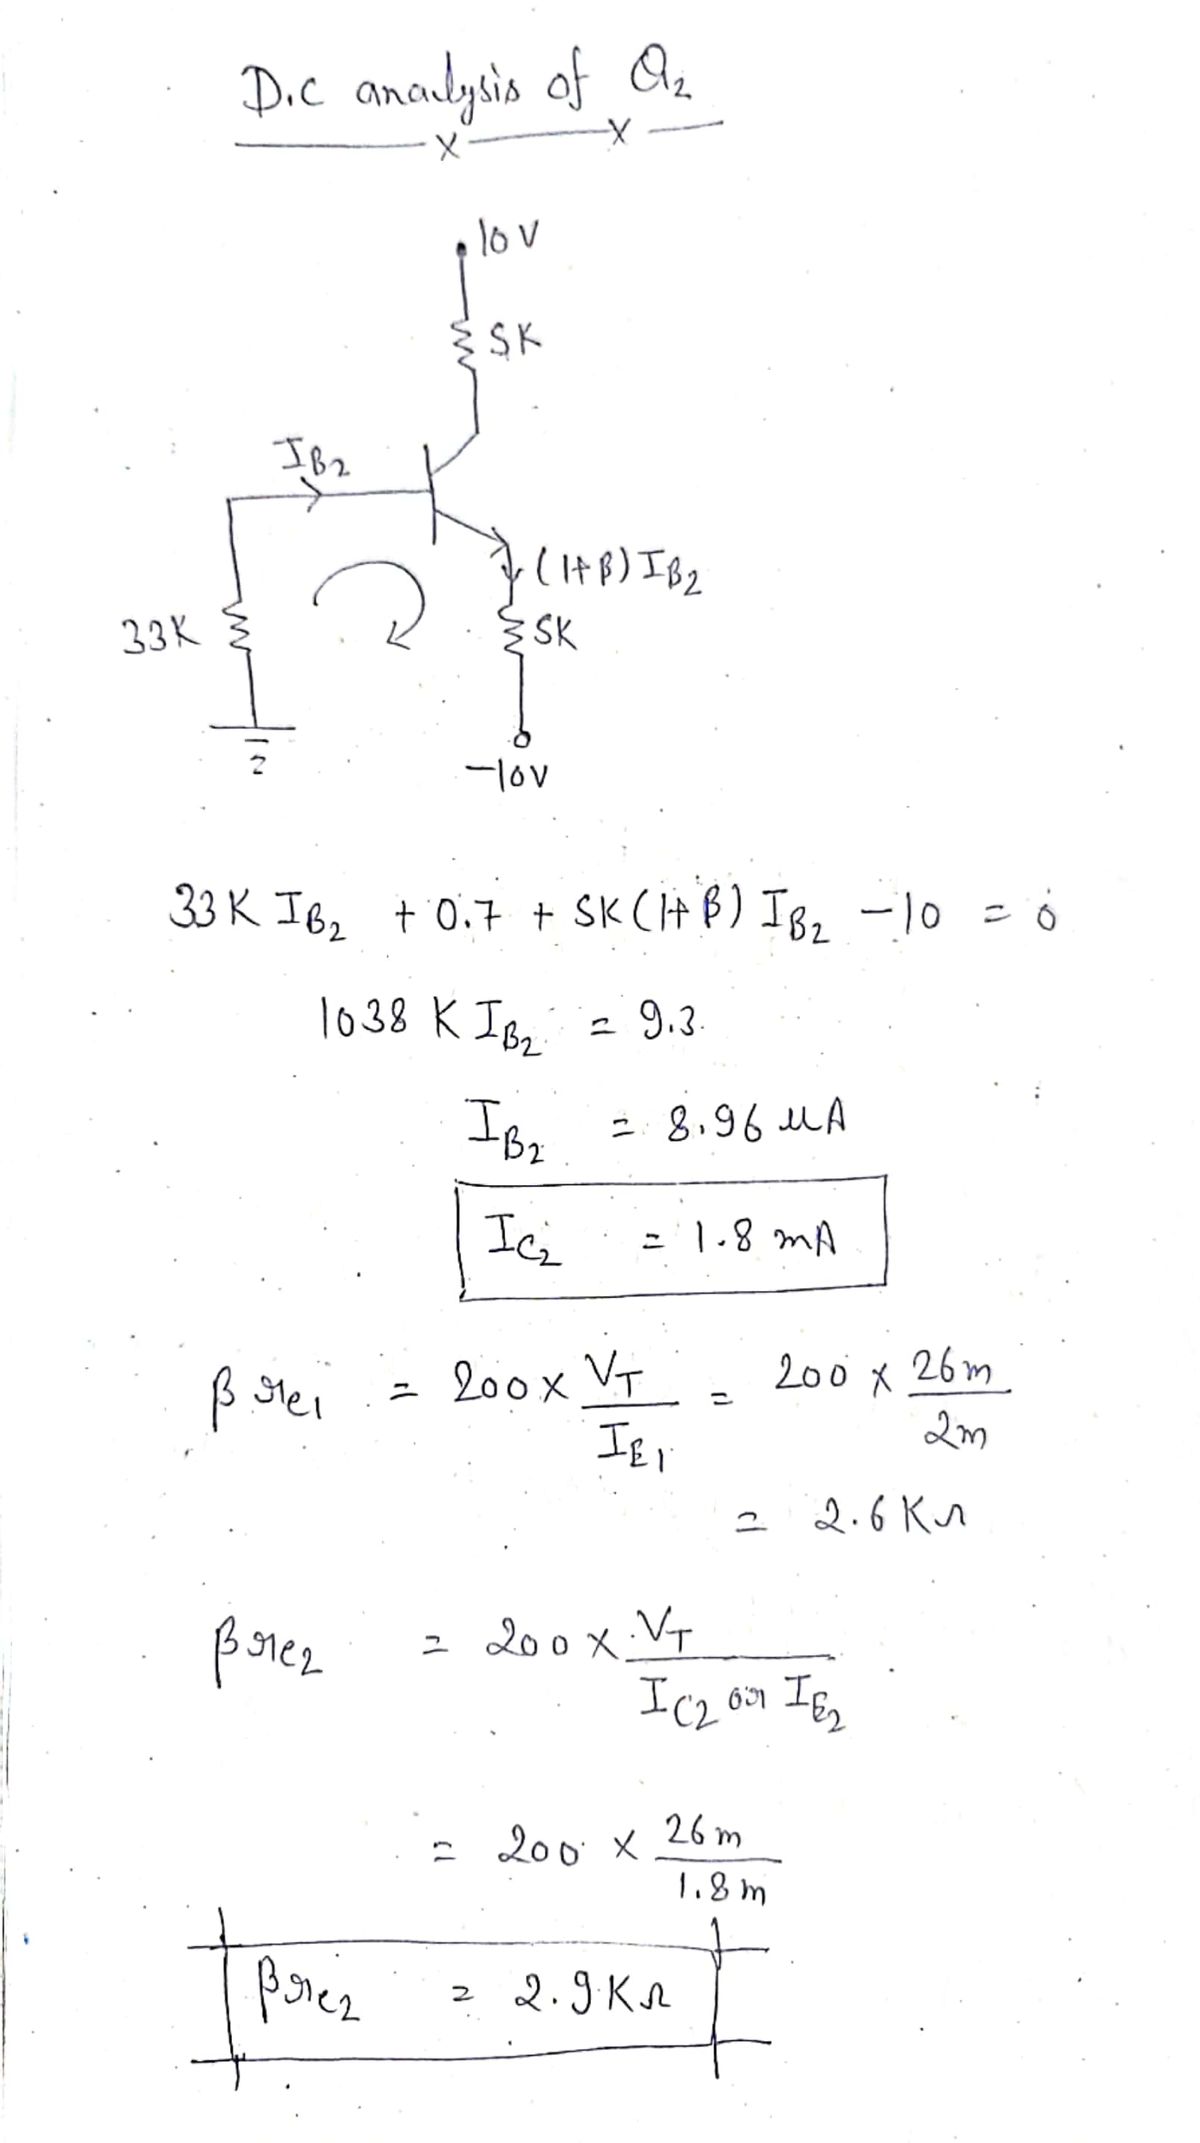 D.C analysis of Q₂
10V
5K
I_B₂
(1+β) I_B₂
33K
5K
-10V
33K I_B₂ + 0.7 + 5K(1+β) I_B₂ - 10 = 0
1038 K I_B₂ = 9.3
I_B₂ = 8.96 μA
I_C₂ = 1.8 mA
β re₁ = 200 × V_T / I_E₁ = 200 × 26m / 2m
= 2.6 KΩ
β re₂ = 200 × V_T / I_C₂ or I_E₂
= 200 × 26m / 1.8m
β re₂ = 2.9 KΩ